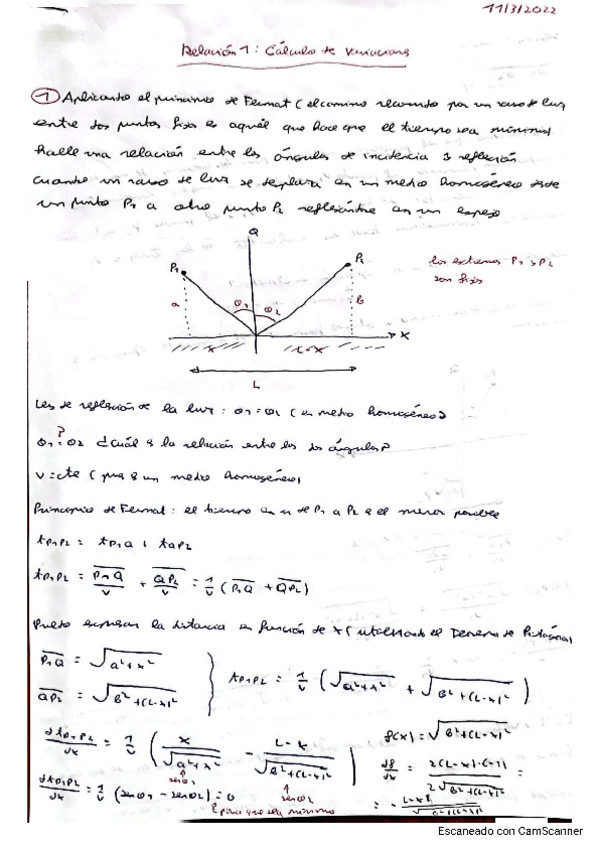 11/3/2022
Relación 1: Cálculo de Variaciones
① Aplicando el principio de Fermat (el camino recorrido por un rayo de luz
entre dos puntos fijos es aquél que hace que el tiempo sea mínimo)
halle una relación entre los ángulos de incidencia y reflexión
cuando un rayo de luz se desplaza en un medio homogéneo desde
un punto P1 a otro punto P2 reflejándose en un espejo
Q
P1
P2
los extremos P1 y P2
son fijos
a
θ1
θ2
b
x
x
L-x
L
Ley de reflexión de la luz: θ1=θ2 (en medio homogéneo)
?
θ1=θ2 ¿cuál es la relación entre los dos ángulos?
v=cte (pues un medio homogéneo)
Principio de Fermat: el tiempo en ir de P1 a P2 es el menor posible
tP1P2 = tP1Q + tQP2
tP1P2 = P1Q/v + QP2/v = 1/v (P1Q + QP2)
Puedo expresar la distancia en función de x (utilizando el Teorema de Pitágoras)
P1Q = √(a²+x²)
QP2 = √(b²+(L-x)²)
tP1P2 = 1/v (√(a²+x²) + √(b²+(L-x)²))
dtP1P2/dx = 1/v (x/√(a²+x²) - (L-x)/√(b²+(L-x)²))
senθ1
senθ2
f(x) = √(b²+(L-x)²)
df/dx = 2(L-x)·(-1)/2√(b²+(L-x)²) =
= -(L-x)/√(b²+(L-x)²)
dtP1P2/dx = 1/v (senθ1 - senθ2) = 0
para que sea mínimo
Escaneado con CamScanner